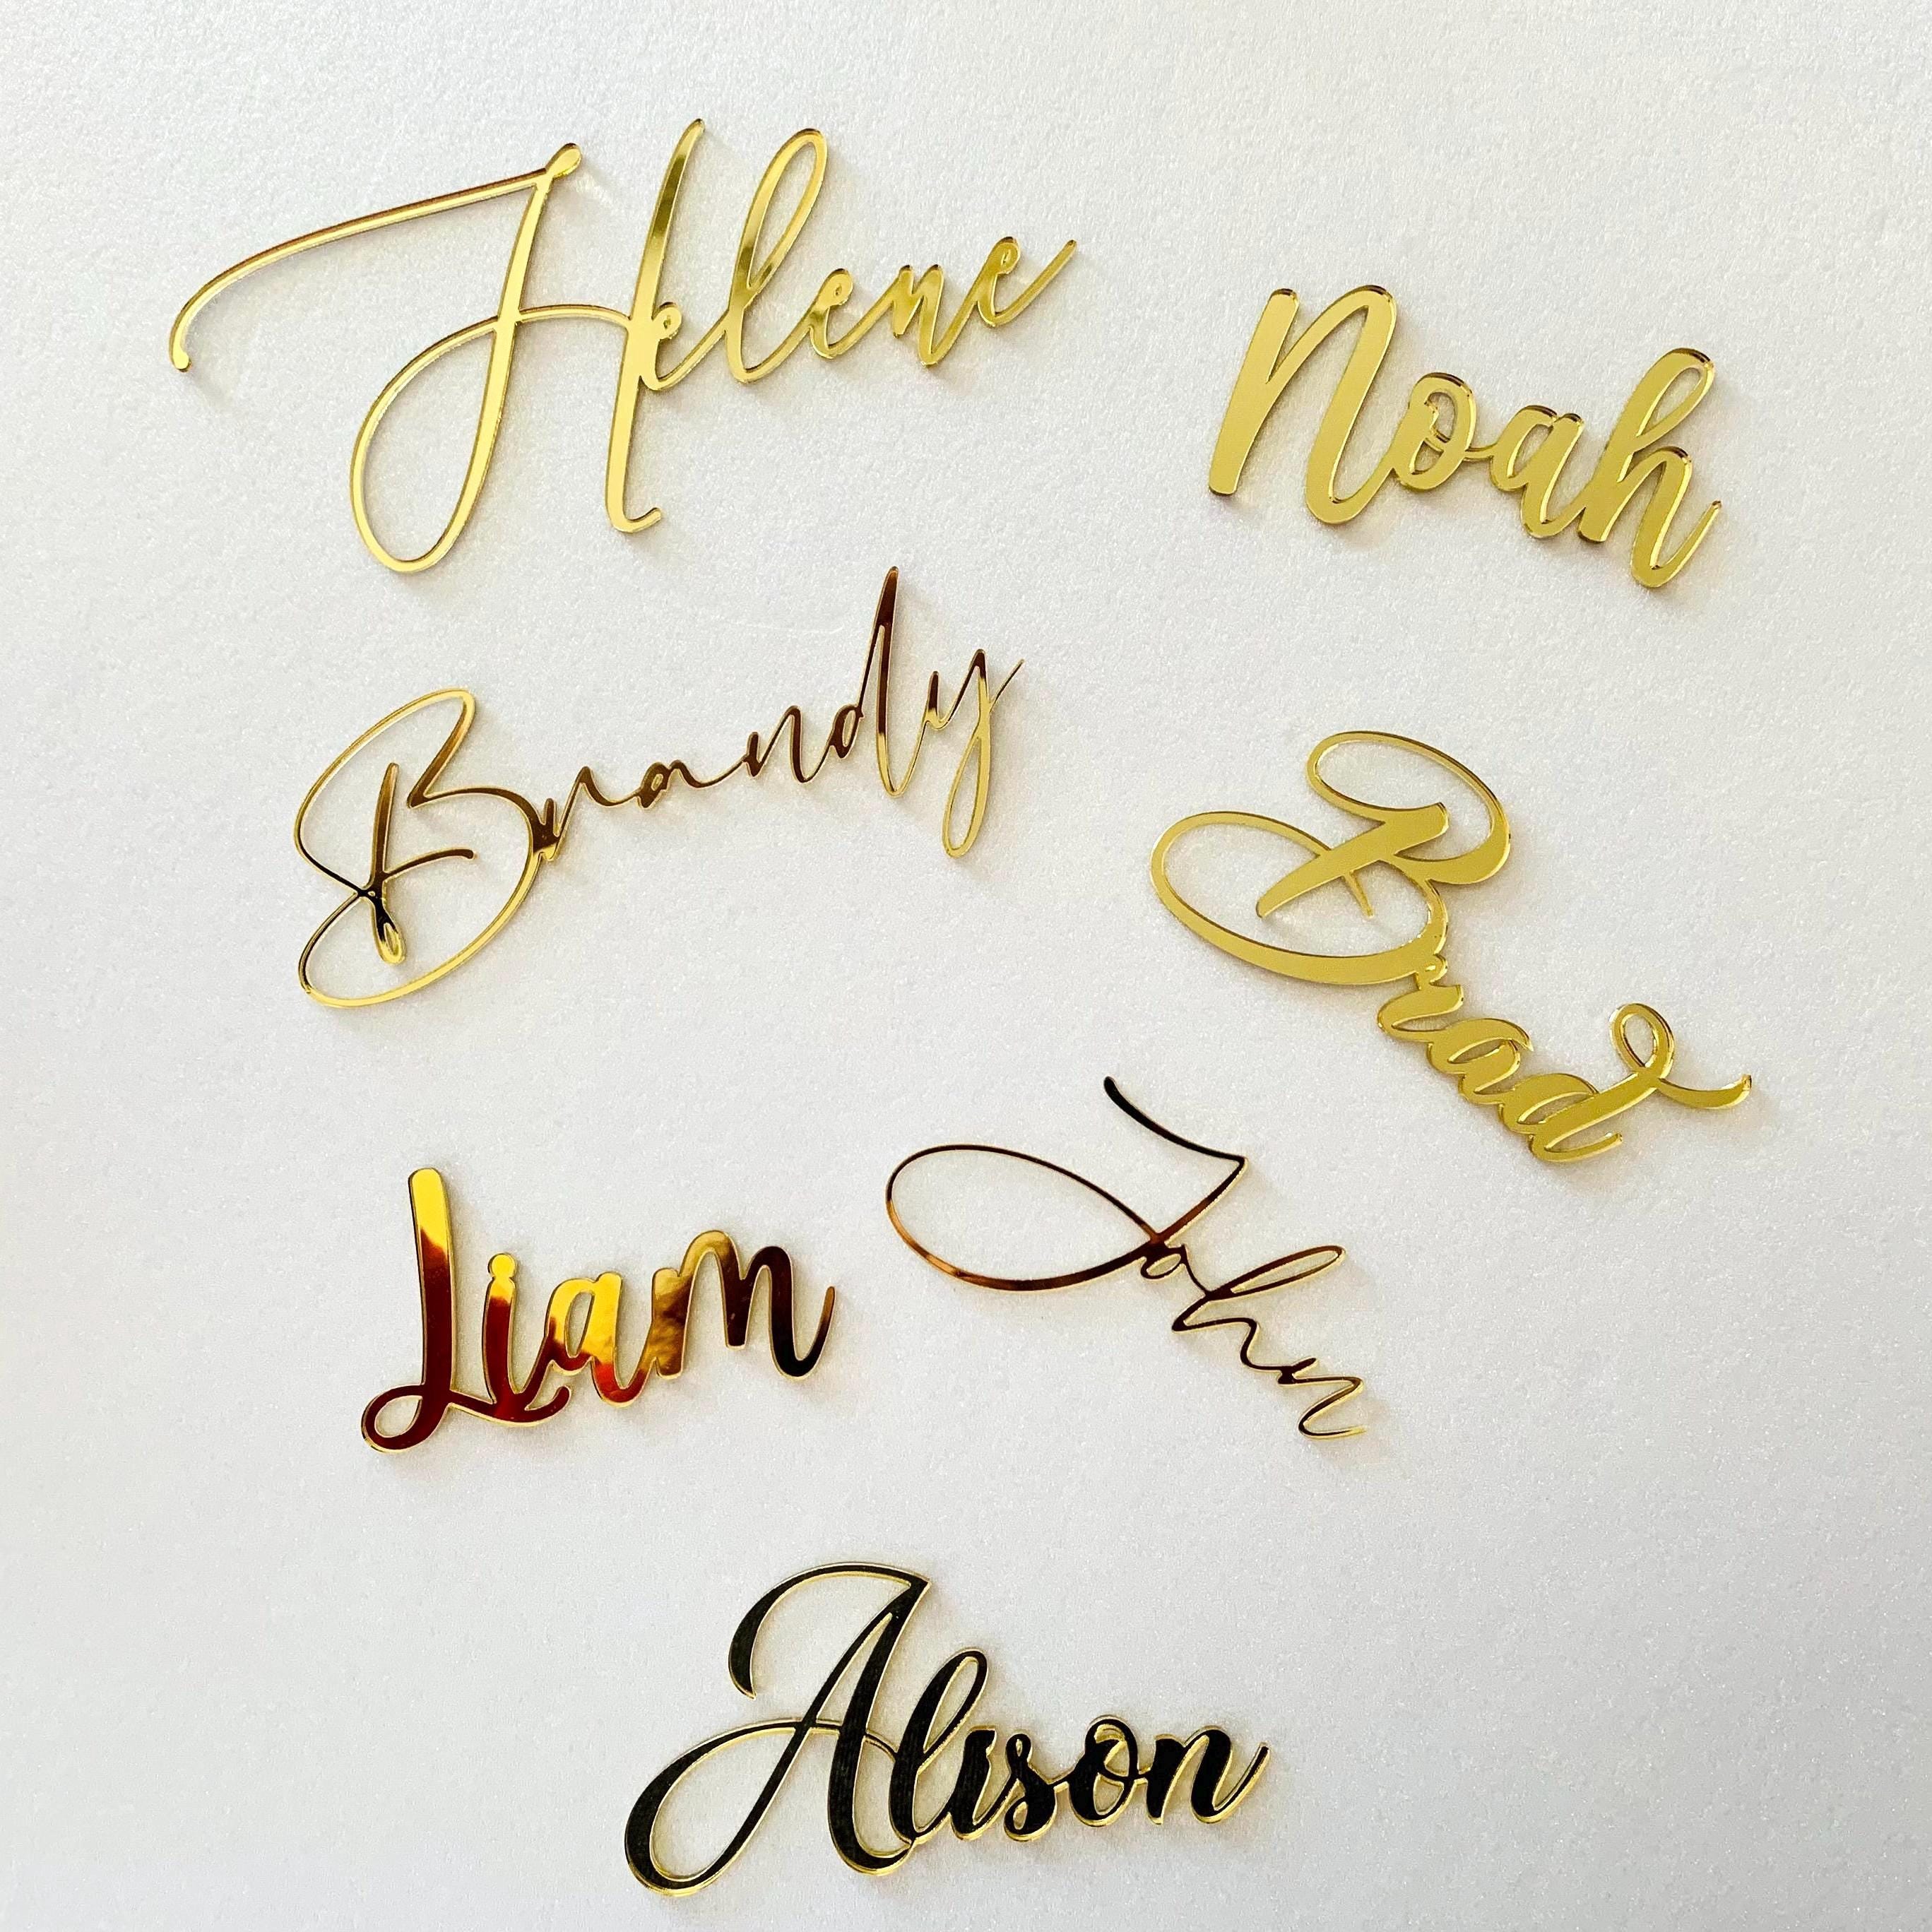 Helene
Noah
Brandy
Brad
Liam
John
Alison